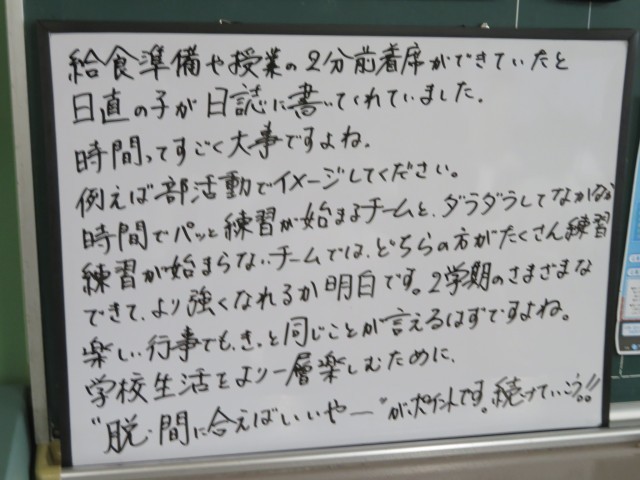 給食準備や授業の2分前着席ができていたと
日直の子が日誌に書いてくれていました。
時間ってすごく大事ですよね。
例えば部活動でイメージしてください。
時間でパッと練習が始まるチームと、ダラダラしてなかなか
練習が始まらないチームでは、どちらの方がたくさん練習
できて、より強くなれるか明白です。2学期のさまざまな
楽しい行事でも、きっと同じことが言えるはずですよね。
学校生活をより一層楽しむために、
"脱・間に合えばいいやー"がポイントです。続けていこう!!